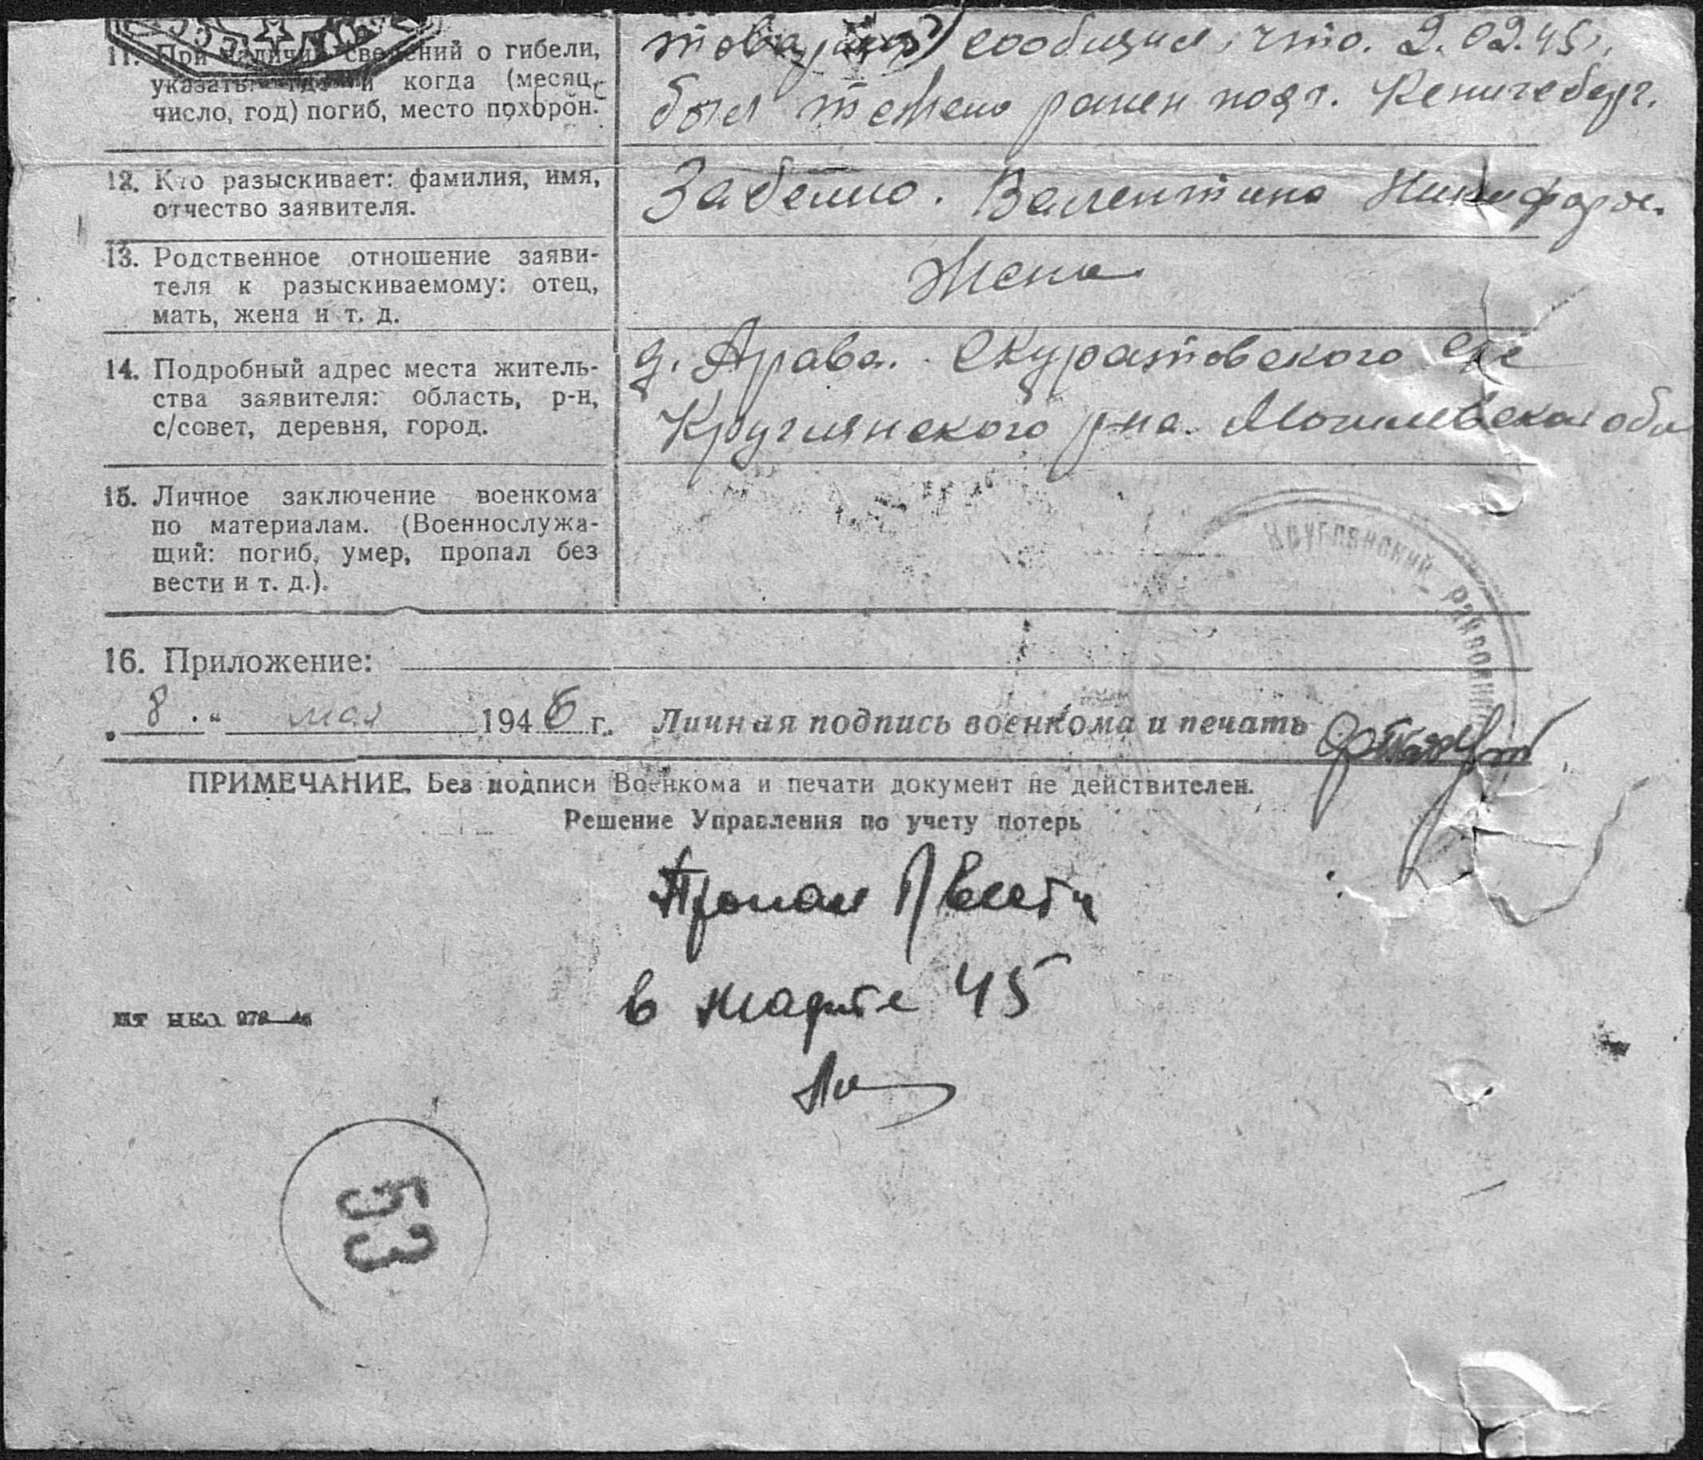 11. При наличии сведений о гибели,
указать: где и когда (месяц,
число, год) погиб, место похорон.
товарищ) сообщил, что. 2.02.45г.
был тежело ранен под г. Кенигсберг.
12. Кто разыскивает: фамилия, имя,
отчество заявителя.
Забелло. Валентина Никифоров.
13. Родственное отношение заяви-
теля к разыскиваемому: отец,
мать, жена и т. д.
Жена
14. Подробный адрес места житель-
ства заявителя: область, р-н,
с/совет, деревня, город.
д. Арава. Скуратовского с/с
Круглянского р-на. Могилевской обл
15. Личное заключение военкома
по материалам. (Военнослужа-
щий: погиб, умер, пропал без
вести и т. д.).
КРУГЛЯНСКИЙ РАЙВОЕН
16. Приложение:
„ 8 “ мая 1946 г. Личная подпись военкома и печать
ПРИМЕЧАНИЕ. Без подписи Военкома и печати документ не действителен.
Решение Управления по учету потерь
Пропал вести
в марте 45
53